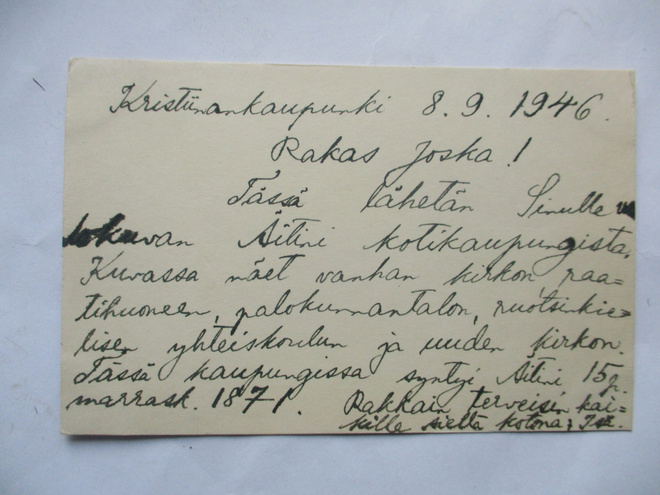 Kristiinankaupunki 8.9.1946.
Rakas Joska!
Tässä lähetän Sinulle va-
lokuvan Äitini kotikaupungista.
Kuvassa näet vanhan kirkon, raa=
tihuoneen, palokunnantalon, ruotsinkie=
lisen yhteiskoulun ja uuden kirkon.
Tässä kaupungissa syntyi Äitini 15 p.
marrask. 1871.
Rakkain terveisin kai-
kille siellä kotona; Isä.